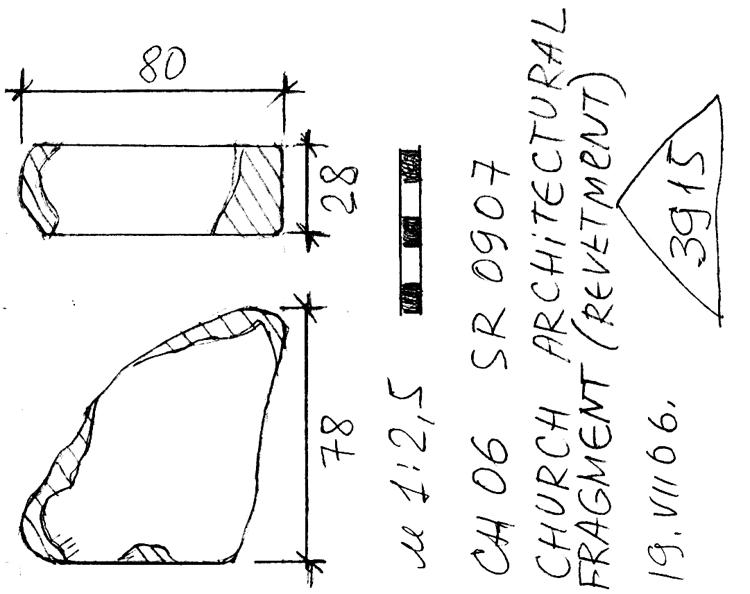 80
28
78
м 1:2,5
CH 06 SR 0907
CHURCH ARCHITECTURAL
FRAGMENT (REVETMENT)
19.VII 06.
3915